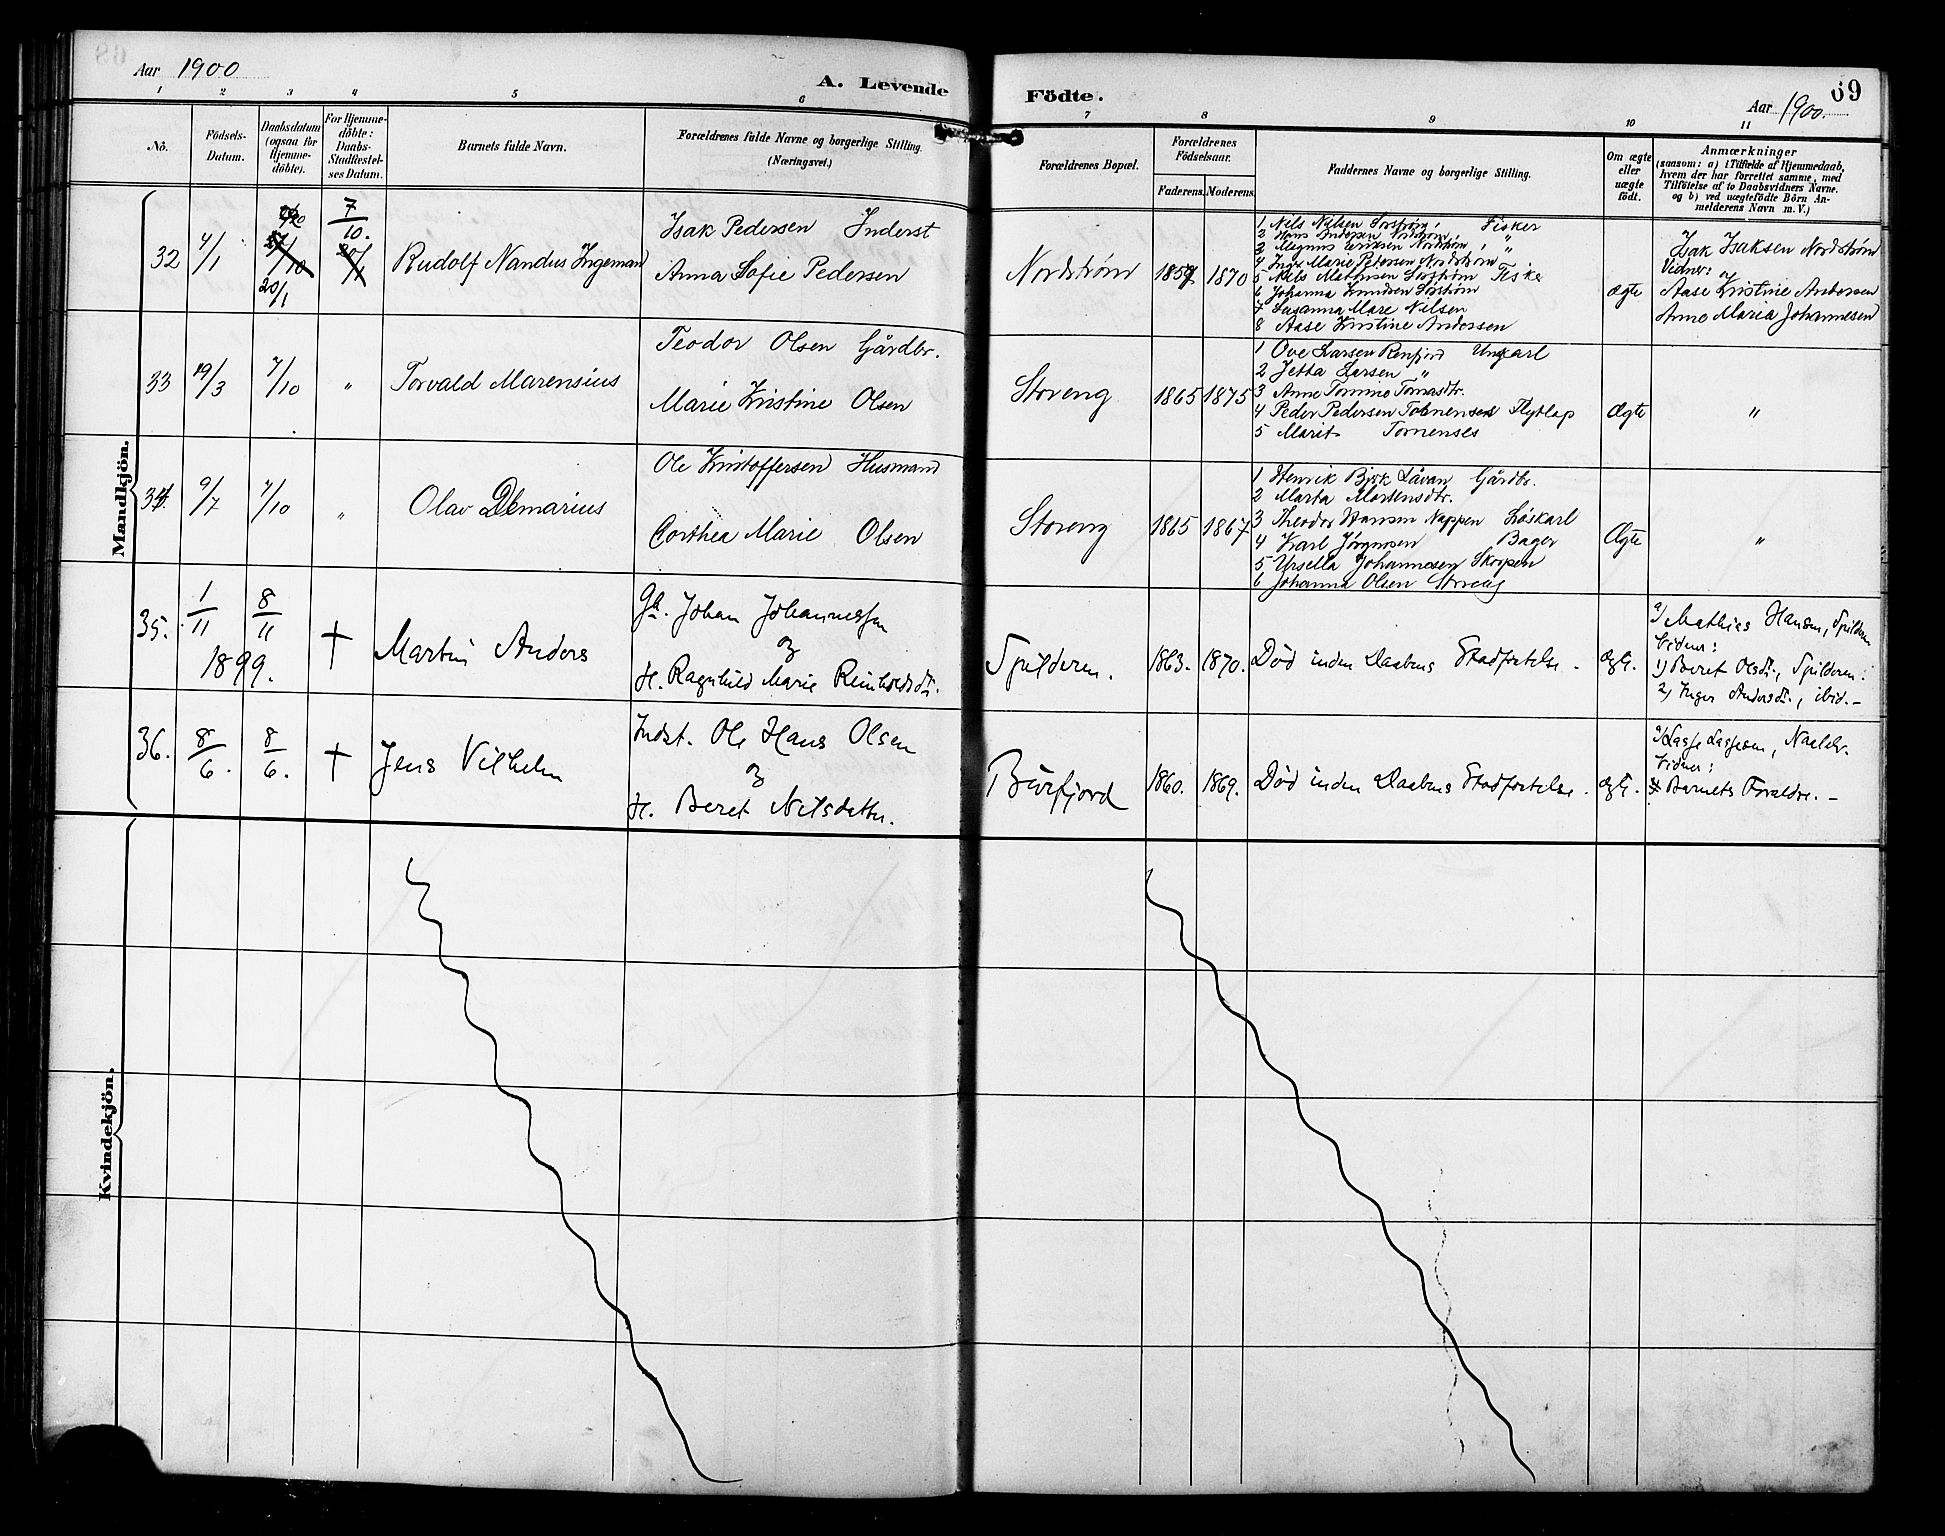 Aar 1900
A. Levende
1 2 3 4 5 6
No.
Födsels-
Datum.
Daabsdatum
(ogsaa for
Hjemme-
döbte).
For Hjemme-
döbte:
Daabs-
Stadfæstel-
ses Datum.
Barnets fulde Navn.
Forældrenes fulde Navne og borgerlige Stilling.
(Næringsvei.)
Mandkjön.
32 4/1 20/1 7/10. Rudolf Nandus Ingeman
Isak Pedersen Inderst
Anna Sofie Pedersen
33 19/3 7/10 " Torvald Marensius
Teodor Olsen Gårdbr.
Marie Kristine Olsen
34 9/7 7/10 " Olav Demarius
Ole Kristoffersen Husmand
Dorthea Marie Olsen
35. 1/11 8/11 1899. † Martin Anders
Ga. Johan Johannessen
og
H. Ragnhild Marie Reinholdsdt.
36. 8/6. 8/6. † Jens Vilhelm
Indst. Ole Hans Olsen
og
H. Beret Nilsdatter.
Kvindekjön.
Födte.
69
Aar 1900.
7 8 9 10 11
Forældrenes Bopæl.
Forældrenes
Födselsaar.
Faderens. Moderens.
Faddernes Navne og borgerlige Stilling.
Om ægte
eller
uægte
födt.
Anmærkninger
(saasom: a) i Tilfælde af Hjemmedaab,
hvem der har forrettet samme, med
Tilföielse af to Daabsvidners Navne.
og b) ved uægtefödte Börn An-
melderens Navn m. V.)
Nordstrøm 1857 1870
1 Nils Nilsen Sørstrøm, Fisker
2 Hans Andersen Nordstrøm, "
3 Magnus Eriksen Nordstrøm, "
4 Inger Marie Petersen Nordstrøm
5 Nils Mathisen Sørstrøm Fisker
6 Johanna Knudsen Sørstrøm
7 Susanna Mare Nilsen
8 Aase Kristine Andersen
ægte
Isak Isaksen Nordstrøm
Vidner:
Aase Kristine Andersen
Anne Maria Johannesen
Storeng 1865 1875
1 Ove Larsen Renfjord Ungkarl
2 Jetta Larsen "
3 Anne Tomine Tomasdtr.
4 Peder Pedersen Tornensis Flytlap
5 Marit Tornenses
Ægte
"
Storeng 1865 1867
1 Henrik Bjrk Låvan Gårdbr.
2 Marta Mortensdtr.
3 Theodor Hansen Nappen Løskarl
4 Karl Jørgensen Bager
5 Ursella Johannesen Skorpen
6 Johanna Olsen Storeng
Ægte
"
Spilderen. 1863. 1870. Død inden Daabens Stadfæstelse. ægte.
a) Mathias Hansen, Spilderen
Vidner:
1) Beret Olsdt., Spilderen.
2) Inger Andersdt., ibid. –
Burfjord 1860. 1869. Død inden Daabens Stadfæstelse. ægte.
a) Lasse Lassesen,
Vidner:
Barnets Forældre. –